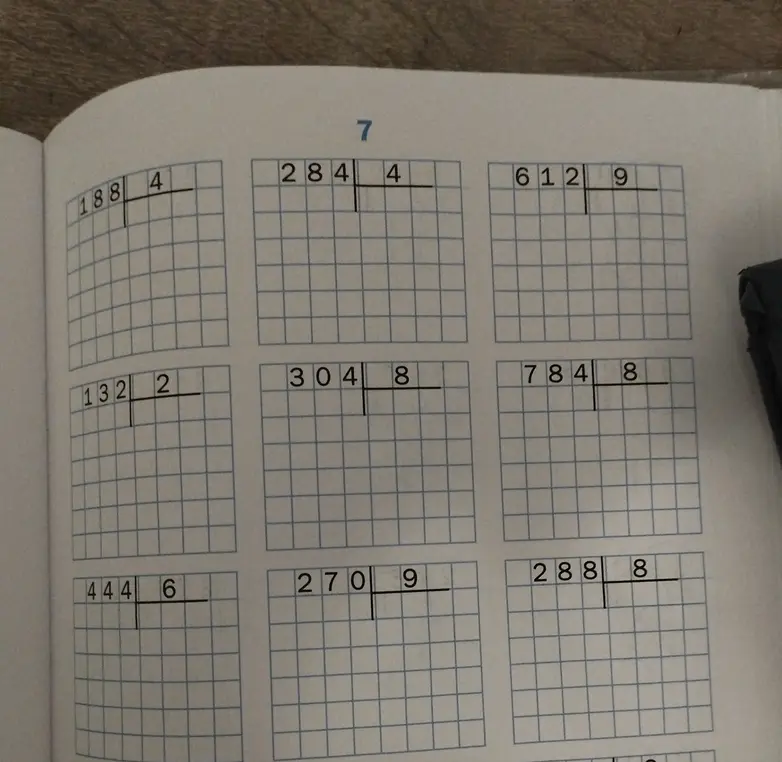 7
188 4
284 4
612 9
132 2
304 8
784 8
444 6
270 9
288 8